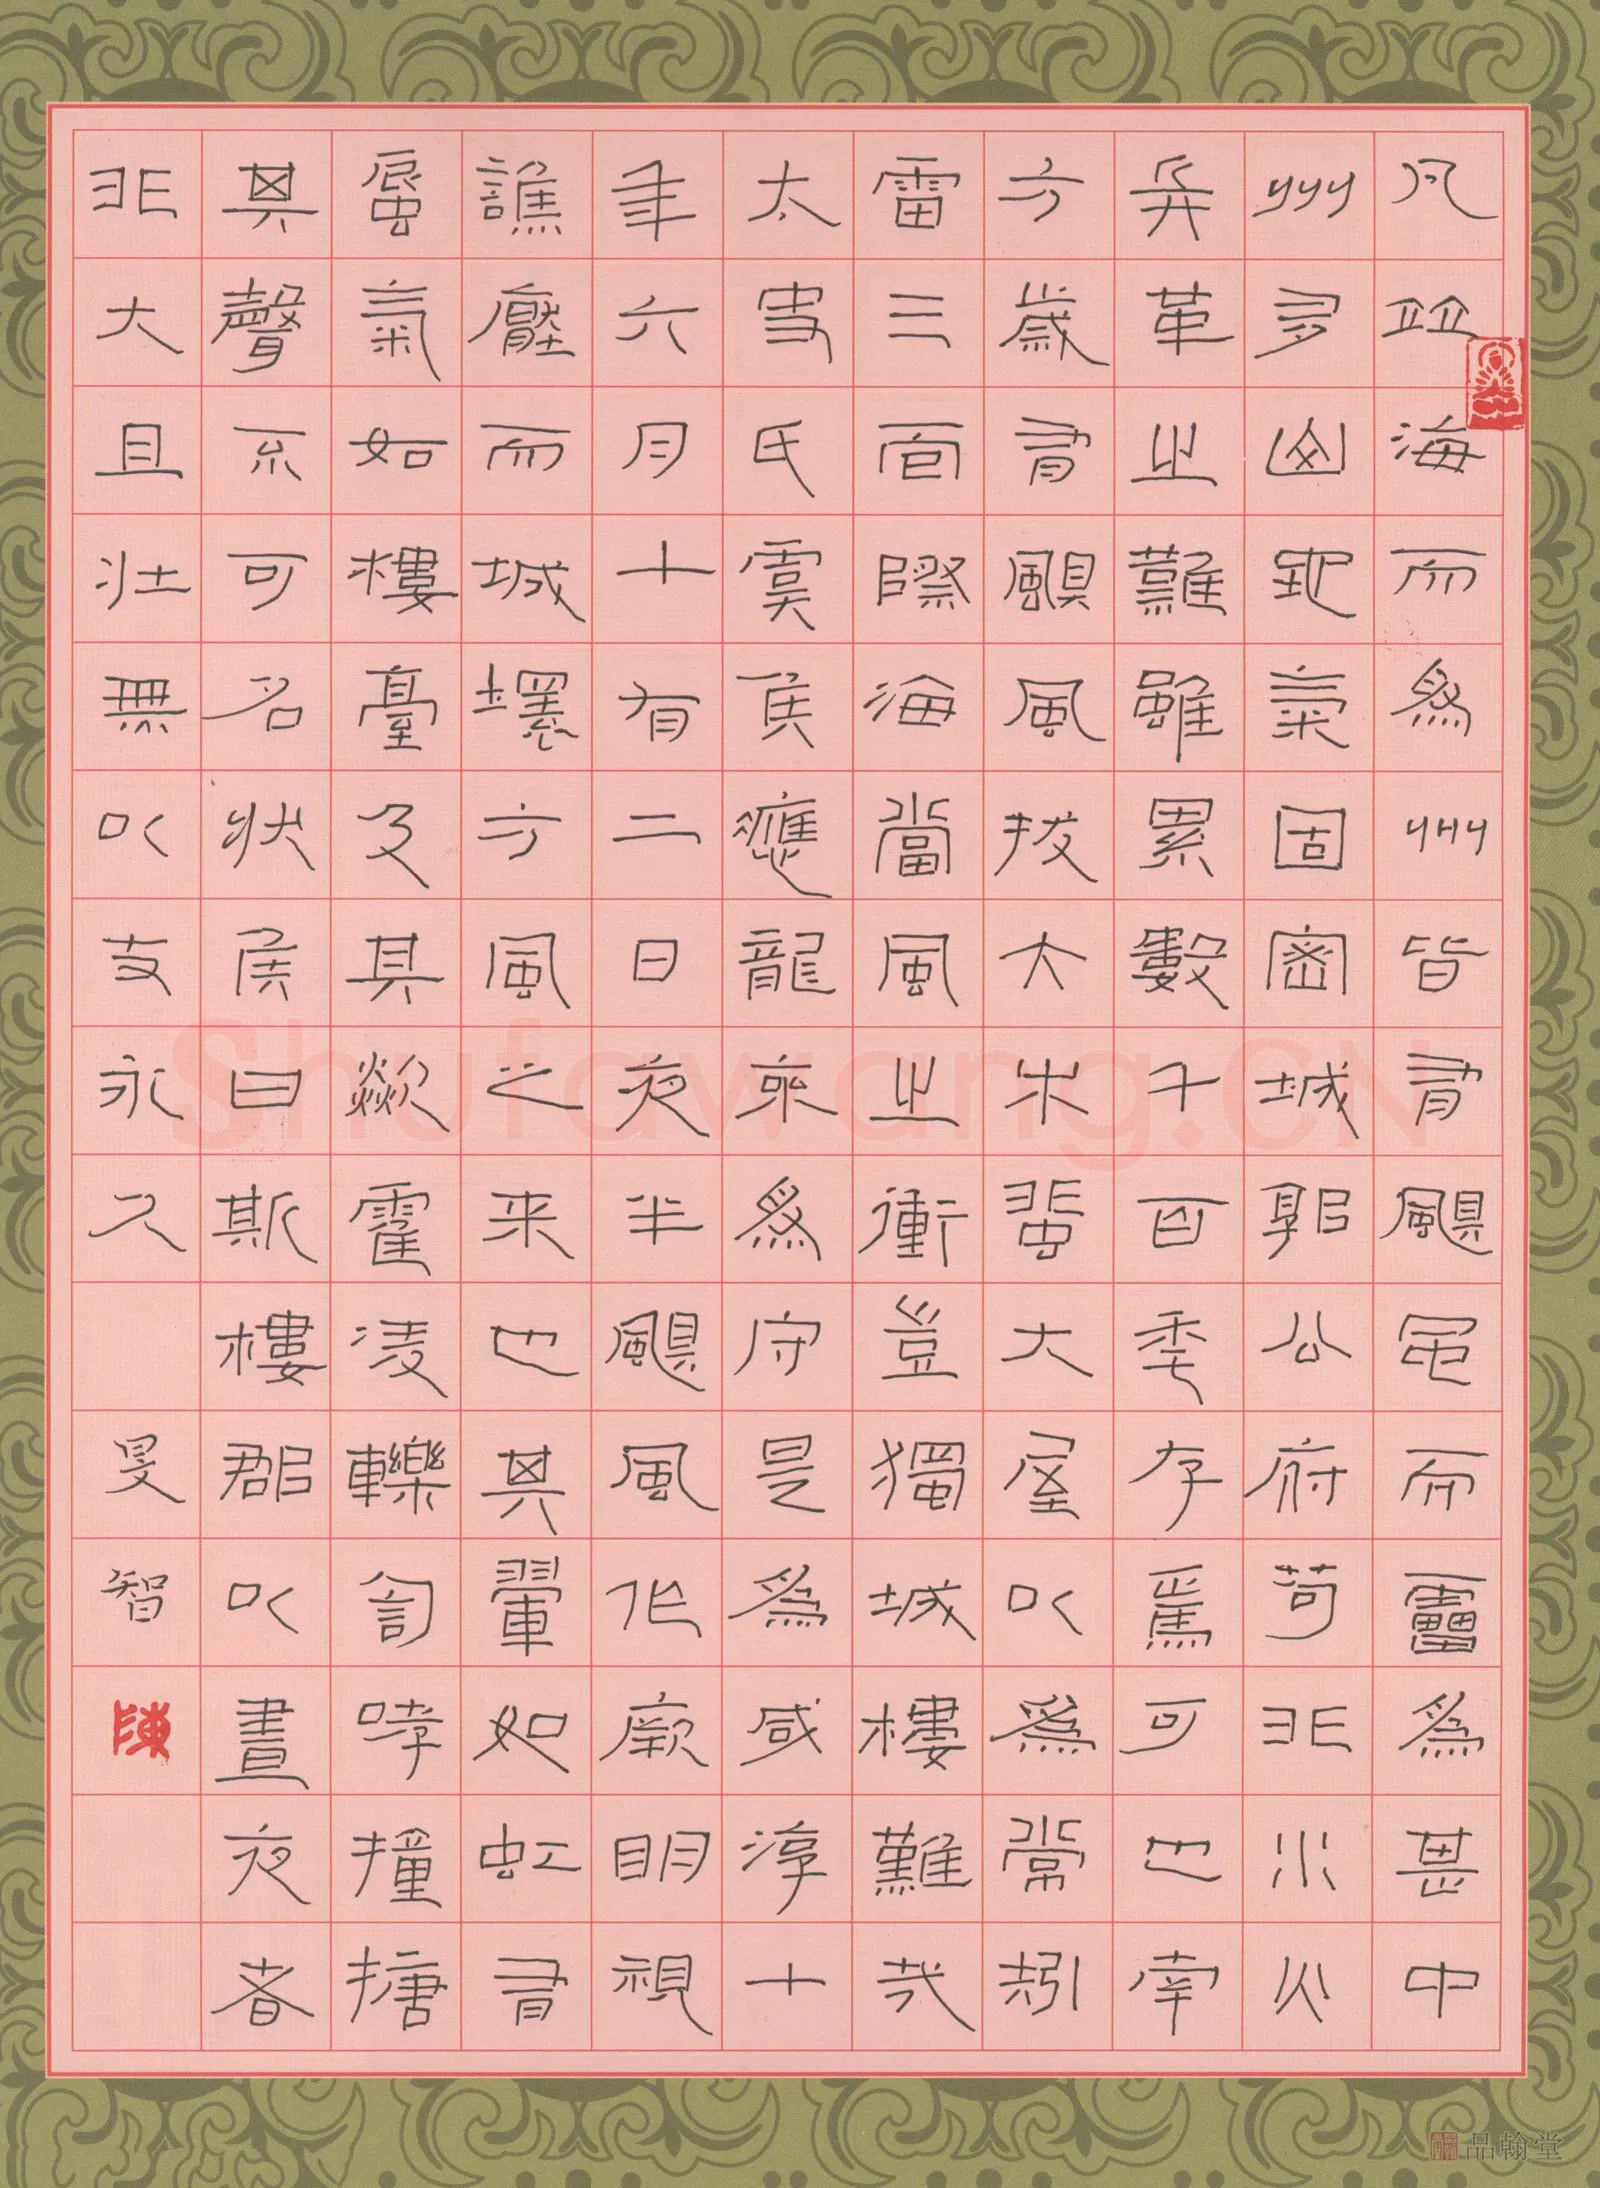 凡並海而為州皆有颶風而靁為甚中
州多山地氣固密城郭公府苟非水火
兵革之難雖累數千百年存焉可也南
方歲有颶風拔大木蜚大屋以為常矧
雷三面際海當風之衝豈獨城樓難哉
太史氏虞侯應龍來為守是為咸淳十
年六月十有二日夜半颶風作厥明視
譙壓而城壞方風之来也其翬如虹有
蜃氣如樓臺及其歘霍凌轢訇哮撞搪
其聲不可名狀侯曰斯樓郡以晝夜者
非大且壯無以支永久
旻智
陳
Shufawang.CN
品翰堂